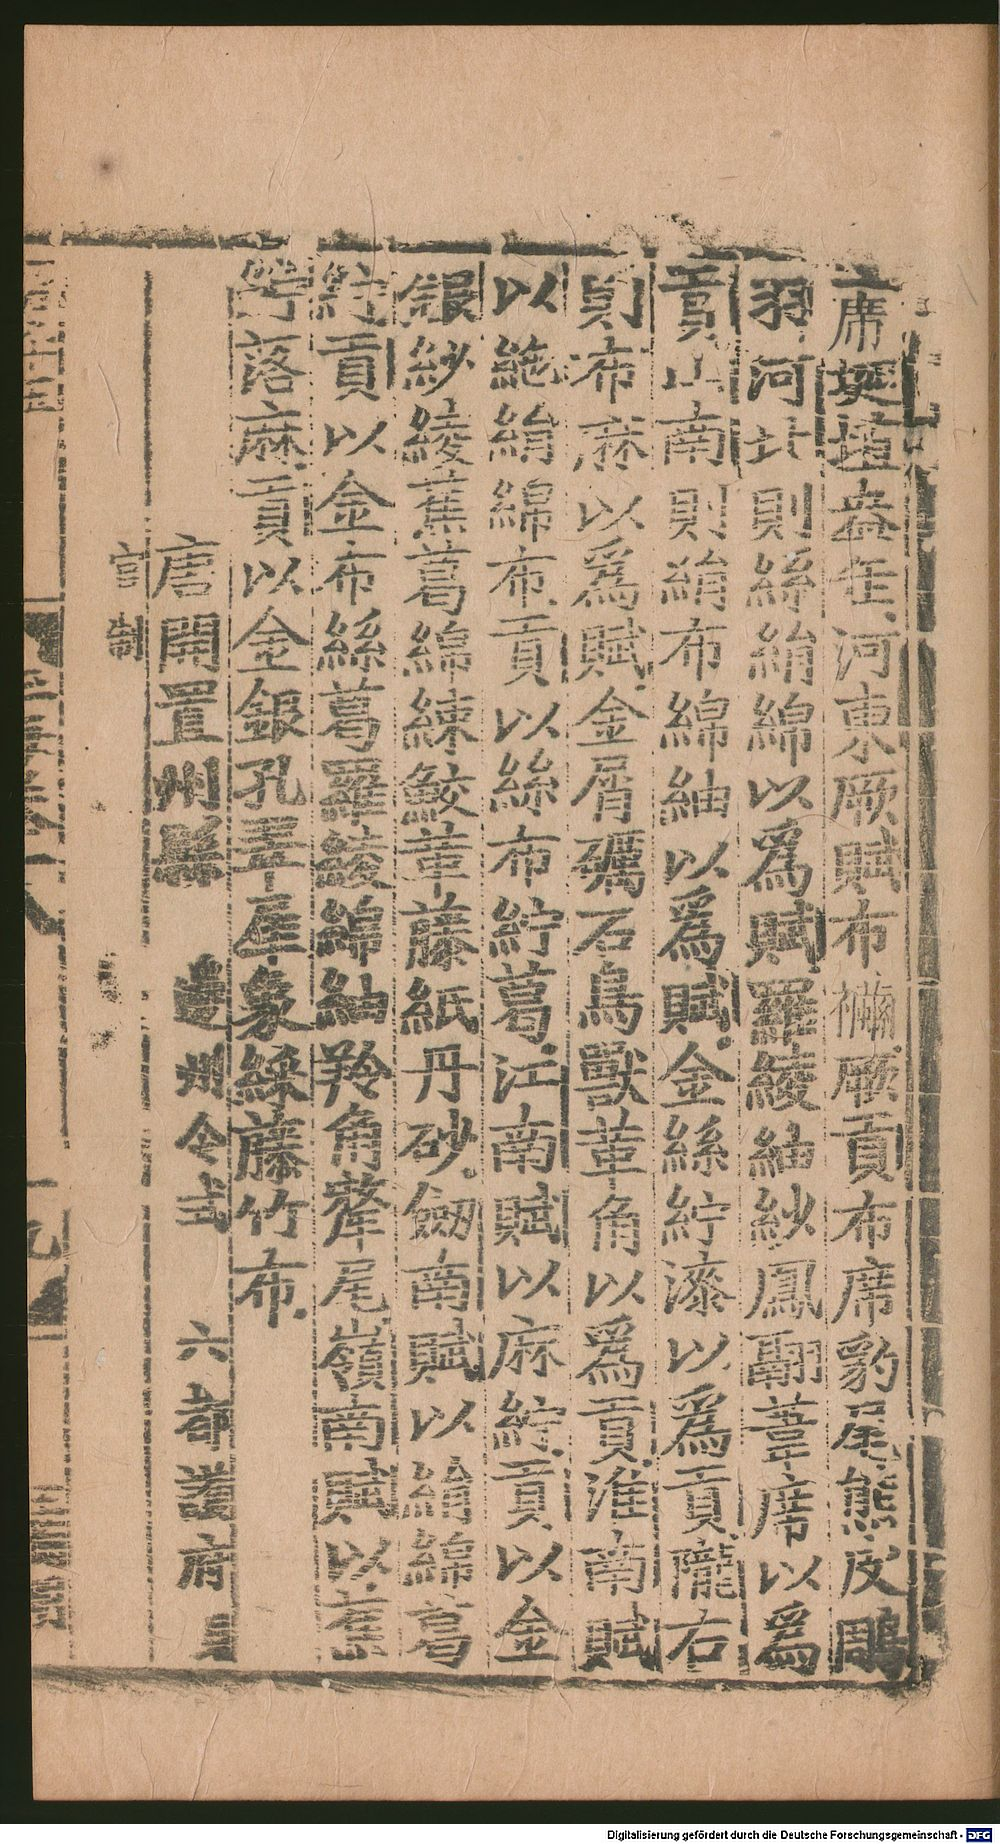 席埏埴盎缶河東厥賦布襺厥貢布席豹尾熊皮鵰
羽河北則絲絹綿以爲賦羅綾紬紗鳳翮葦席以爲
貢山南則絹布綿紬以爲賦金絲紵漆以爲貢隴右
則布麻以爲賦金屑礪石鳥獸革角以爲貢淮南賦
以絁絹綿布貢以絲布紵葛江南賦以麻紵貢以金
銀紗綾蕉葛綿練鮫革藤紙丹砂劒南賦以絹綿葛
紵貢以金布絲葛羅綾綿紬羚角犛尾嶺南賦以蕉
紵落麻貢以金銀孔翠犀象綵藤竹布
唐開置州縣 邊州令式 六都護府
官制
Digitalisierung gefördert durch die Deutsche Forschungsgemeinschaft - DFG